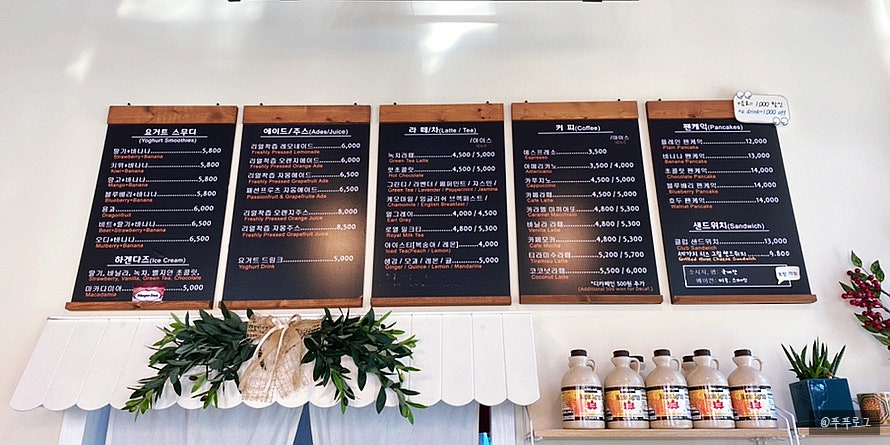 요거트 스무디
(Yoghurt Smoothies)
딸기+바나나 5,800
Strawberry+Banana
키위+바나나 5,800
Kiwi+Banana
망고+바나나 5,800
Mango+Banana
블루베리+바나나 5,800
Blueberry+Banana
용과 6,000
Dragonfruit
비트+딸기+바나나 6,500
Beet+Strawberry+Banana
오디+바나나 6,500
Mulberry+Banana
하겐다즈(Ice Cream)
딸기, 바닐라, 녹차, 벨지안 초콜릿,
Strawberry, Vanilla, Green Tea, Chocolate
마카다미아 5,000
Macadamia
에이드/주스(Ades/Juice)
리얼착즙 레모네이드 6,000
Freshly Pressed Lemonade
리얼착즙 오렌지에이드 6,000
Freshly Pressed Orange Ade
리얼착즙 자몽에이드 6,500
Freshly Pressed Grapefruit Ade
패션푸르츠 자몽에이드 6,500
Passionfruit & Grapefruite Ade
리얼착즙 오렌지주스 8,000
Freshly Pressed Orange Juice
리얼착즙 자몽주스 8,500
Freshly Pressed Grapefruit Juice
요거트 드링크 5,000
Yoghurt Drink
라 떼/차(Latte / Tea)
/아이스
녹차라떼 4,500 / 5,000
Green Tea Latte
핫초콜릿 4,500 / 5,000
Hot Chocolate
그린티 / 라벤더 / 페퍼민트 / 자스민 /
Green Tea / Lavender / Peppermint / Jasmine
캐모마일 / 잉글리쉬 브랙퍼스트 /
Chamomile / English Breakfast /
얼그레이 4,000 / 4,500
Earl Grey
로열 밀크티 4,800 / 5,300
Royal Milk Tea
아이스티(복숭아 / 레몬) 4,000
Iced Tea(Peach / Lemon)
생강 / 모과 / 귤 / 레몬 5,000
Ginger / Quince / Lemon / Mandarine
커 피(Coffee)
/아이스
에스프레소 3,500
Espresso
아메리카노 3,500 / 4,000
Americano
카푸치노 4,500 / 5,000
Cappuccino
카페라떼 4,500 / 5,000
Cafe Latte
카라멜 마끼아또 4,800 / 5,300
Caramel Macchiato
바닐라 라떼 4,800 / 5,300
Vanilla Latte
카페모카 4,800 / 5,300
Cafe Mocha
티라미수라떼 5,200 / 5,700
Tiramisu Latte
코코넛라떼 5,500 / 6,000
Coconut Latte
*디카페인 500원 추가
(Additional 500 won for Decaf.)
팬케익(Pancakes)
플레인 팬케익 12,000
Plain Pancake
바나나 팬케익 13,000
Banana Pancake
초콜릿 팬케익 14,000
Chocolate Pancake
블루베리 팬케익 14,000
Blueberry Pancake
호두 팬케익 14,000
Walnut Pancake
샌드위치(Sandwich)
클럽 샌드위치 13,000
Club Sandwich
세가지 치즈 그릴 샌드위치 9,800
Grilled three Cheese Sandwich
+음료= 1,000 할인
+a drink=1,000 off
@푸푸로그